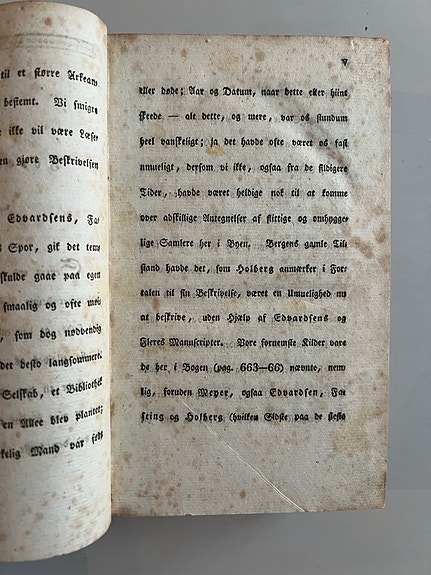 til et større Arkeans
bestemt. Vi smigre
ikke vil være Læser
en gjøre Beskrivelsen
Edvardsens, Fa-
Spor, gik det tems
skulde gaae paa egen
smaalig og ofte
, som dog nødvendig
det desto langsommere.
Selskab, et Bibliothek
en Allee blev plantet;
kelig Mand var født
V
eller døde; Aar og Datum, naar dette eller hiint
skeede — alt dette, og mere, var os stundum
heel vanskeligt; ja det havde ofte været os fast
umueligt, dersom vi ikke, ogsaa fra de sildigere
Tider, havde været heldige nok til at komme
over adskillige Antegnelser af flittige og omhygge-
lige Samlere her i Byen. Bergens gamle Til-
stand havde det, som Holberg anmærker i For-
talen til sin Beskrivelse, været en Umuelighed nu
at beskrive, uden Hjælp af Edvardsens og
Fleres Manuscripter. Vore fornemste Kilder vare
de her i Bogen (pag. 663—66) nævnte, nem-
lig, foruden Meyer, ogsaa Edvardsen, Fa-
sting og Holberg (hvilken Sidste paa de fleste